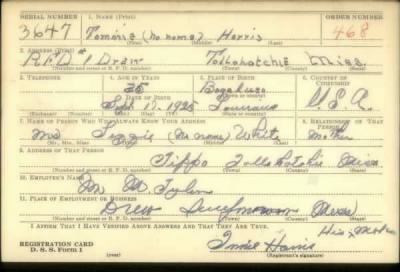 SERIAL NUMBER 1. NAME (Print) ORDER NUMBER
3647 (no name) Harris 468
(First) (Middle) (Last)
2. ADDRESS (Print)
R.F.D. # 1 Drew Tallahatchie Miss.
(Number and street or R. F. D. number) (Town) (County) (State)
3. TELEPHONE 4. AGE IN YEARS 5. PLACE OF BIRTH 6. COUNTRY OF CITIZENSHIP
Bogalusa
DATE OF BIRTH
Sept. 17. 1925 U.S.A.
(Exchange) (Number) (Mo.) (Day) (Yr.) (State or country)
7. NAME OF PERSON WHO WILL ALWAYS KNOW YOUR ADDRESS RELATIONSHIP OF THAT PERSON
Mrs (no name) White Mother
(Mr., Mrs., Miss) (First) (Middle) (Last)
8. ADDRESS OF THAT PERSON
Tippo Miss
(Number and street or R. F. D. number) (Town) (County) (State)
9. EMPLOYER'S NAME
M
10. PLACE OF EMPLOYMENT OR BUSINESS
Drew Miss
(Number and street or R. F. D. number) (Town) (County) (State)
I AFFIRM THAT I HAVE VERIFIED ABOVE ANSWERS AND THAT THEY ARE TRUE. His Mark
REGISTRATION CARD Harris
D. S. S. Form 1 (over) (Registrant's signature)